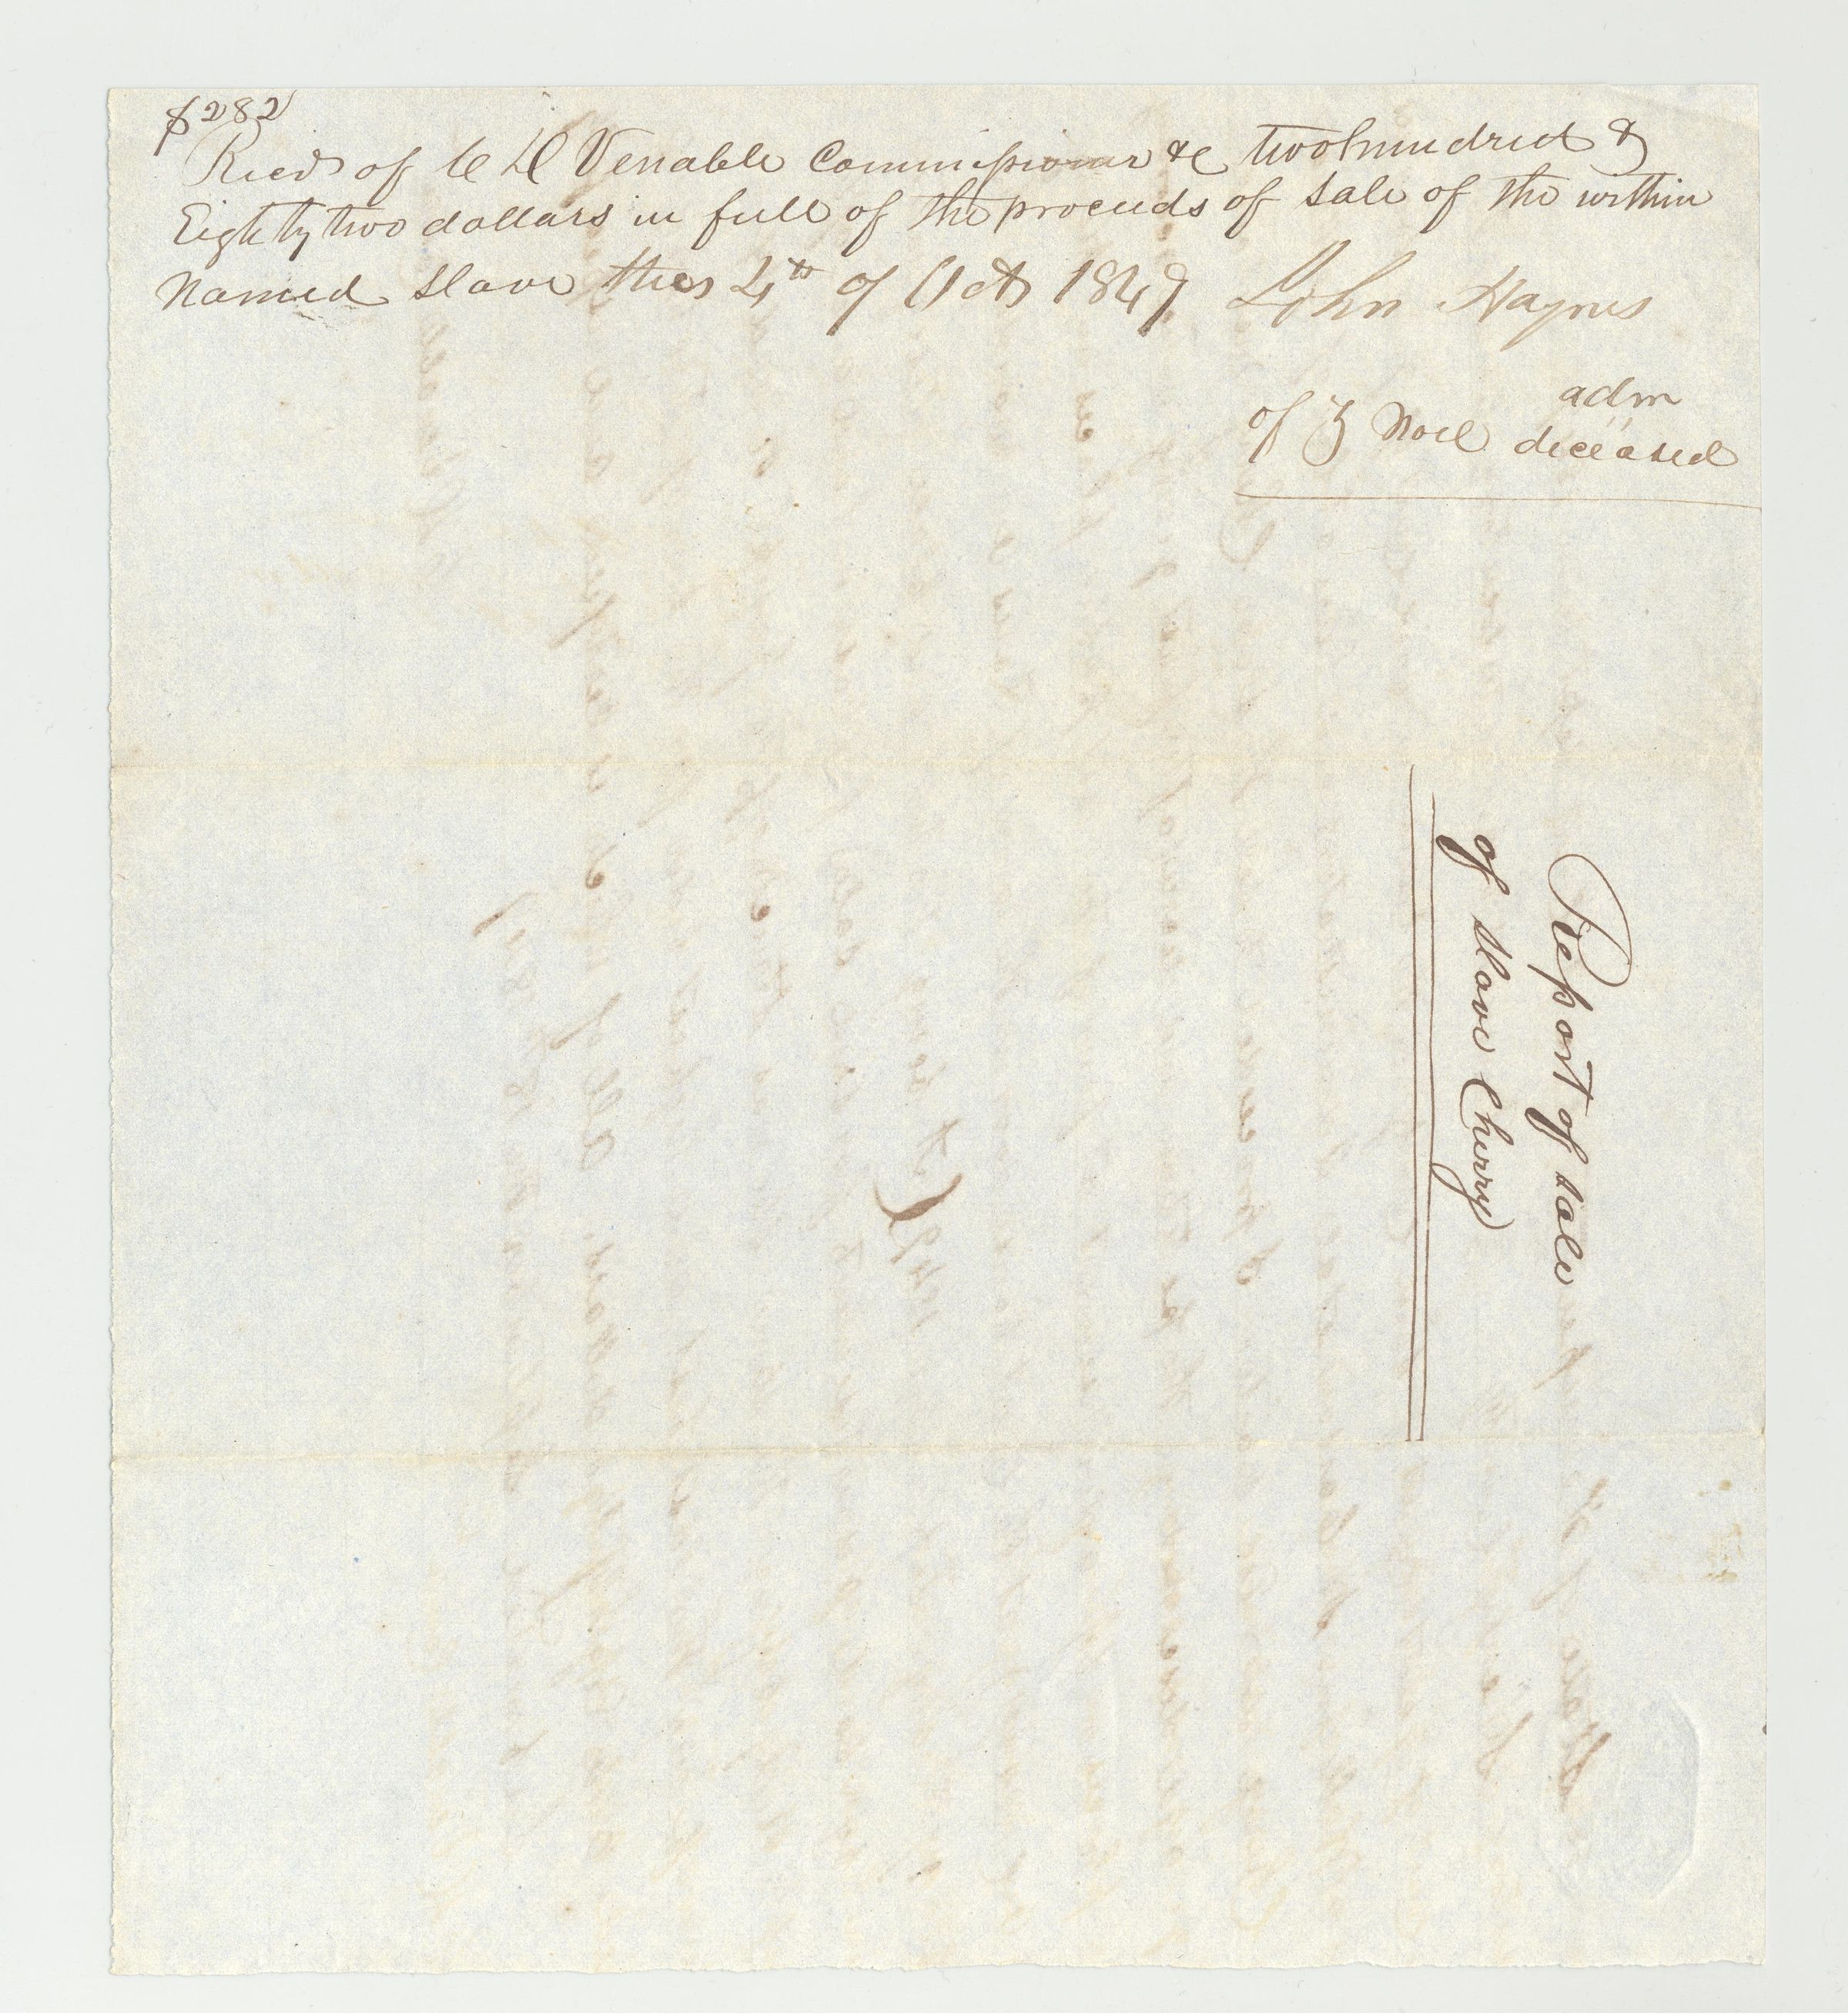 $282
Recd of C D Venable Commissioner &c two hundred &
Eighty two dollars in full of the proceeds of sale of the within
Named slave this 4th of Oct 1849 John Haynes
adm
of Z Noel deceased
Report of sale
of slave Cherry